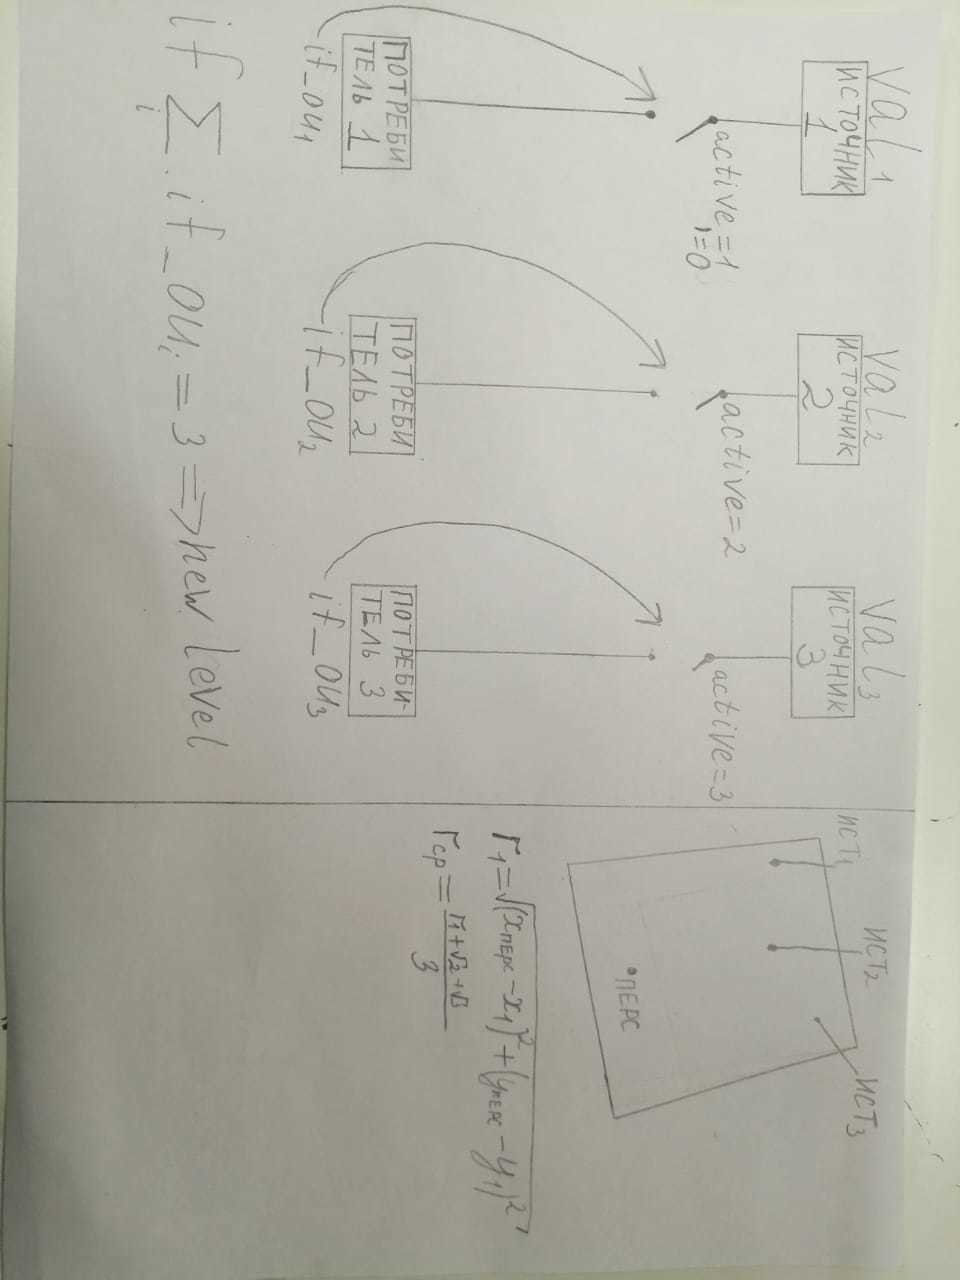 Val₁
ИСТОЧНИК
1
active=1
,=0
ПОТРЕБИ
ТЕЛЬ 1
if_ou₁
Val₂
ИСТОЧНИК
2
active=2
ПОТРЕБИ
ТЕЛЬ 2
if_ou₂
Val₃
ИСТОЧНИК
3
active=3
ПОТРЕБИ-
ТЕЛЬ 3
if_ou₃
if Σ if_ouᵢ = 3 => new level
i
ИСТ₁ ИСТ₂ ИСТ₃
ПЕРС
r₁=√(xперс-x₁)²+(yперс-y₁)²
rср= r₁+√2+√3
3